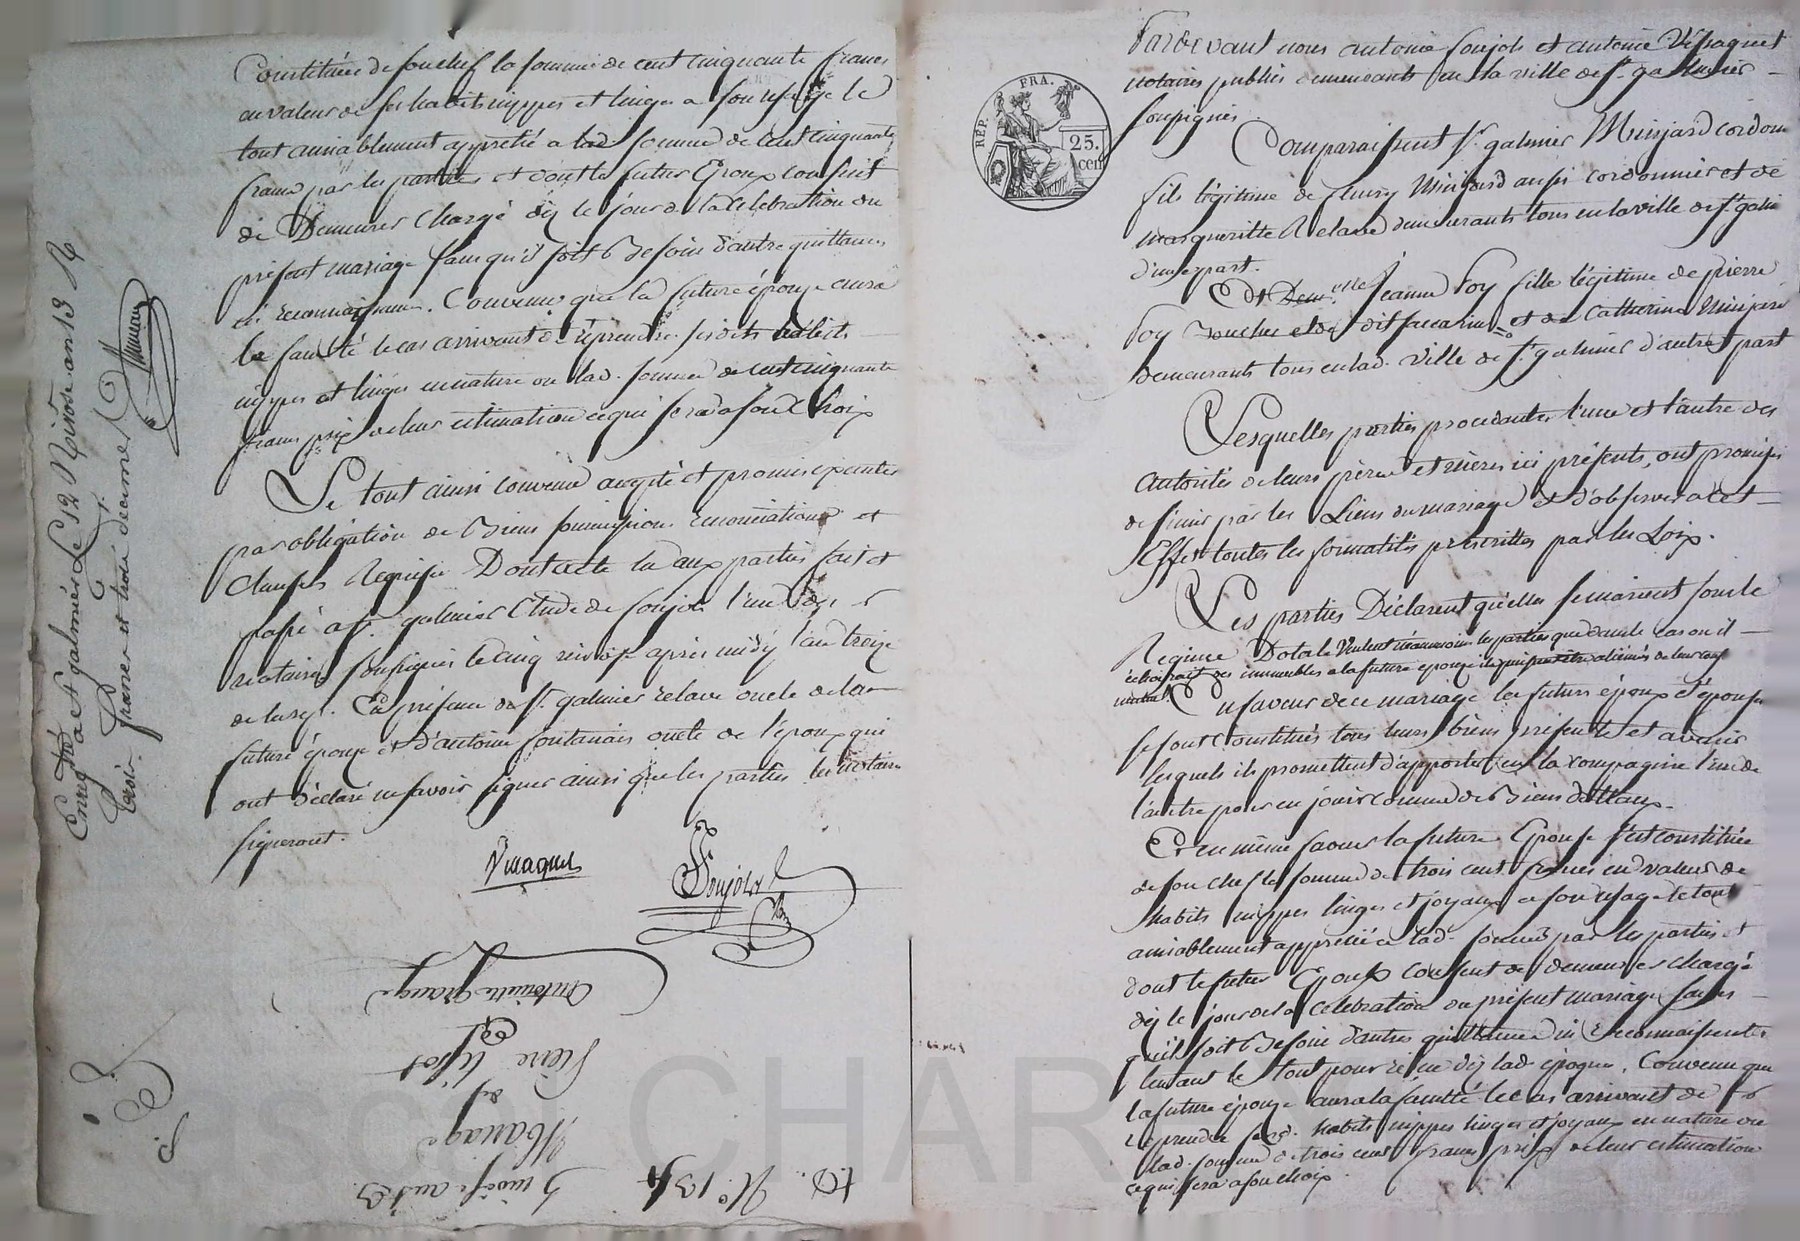 Constituée de son chef la somme de cent cinquante francs
en valeur de ses habits nippes et linges a son usage le
tout amiablement apprétié a lad. somme de cent cinquante
francs par les parties et dont le futur Epoux consent
de Demeurer chargé dèz le jour de la celebration du
présent mariage sans qu'il soit besoin d'autre quittance
ni reconnaissance. Convenu que la future épouze aura
la faculté le cas arrivant de reprendre sesdits habits
nippes et linges en nature ou lad. somme de cent cinquante
francs prix de leur estimation ce qui sera a son choix
Le tout ainsi convenu accepté et promis exécuter
par obligation de biens soumissions renonciations et
clauses Requises Dont acte lu aux parties fait et
passé a St. galmier Etude de Soujols l'un des
notaires soussignés le cinq nivose après midy l'an treize
de la rep. En présence de St. galmier relave oncle de la
future épouze et d'antoine fontanais oncle de l'époux qui
ont déclaré ne savoir signer ainsi que les parties les notaires
signeront.
Vinaquet
Soujols
Enregtré a St galmier Le 12 Nivose an 13
Reçu francs et trois decimes
antoinette grange
et
Pierre
de
Mariage
5 nivose an 13
N.º 134
RÉP. FRA.
25.
cen
Pardevant nous antoine soujols et antoine Vinaquet
notaires publics demeurants en la ville de St. galmier
soussignés.
Comparaissent St. galmier Minjard cordonn
fils légitime de fleury Minjard aussi cordonnier et de
margueritte Relave demeurants tous en la ville de St galm
d'une part.
Et Demelle. Jeanne foy fille légitime de pierre
foy dit et de Catherine Minjard
demeurants tous en lad. ville de St. galmier d'autre part
Lesquelles parties procédantes l'une et l'autre des
autorités de leurs pères et mères ici présents, ont promis
de s'unir par les Liens du mariage et d'observer a cet
Effet toutes les formalités préscrittes par les Loix.
Les parties Déclarent qu'elles se marient sous le
Régime Dotal Veulent néanmoins les parties que dans le cas ou il
des immeubles a la future épouze ils puissent être aliénés de leur cons
mutuel. En faveur de ce mariage les futurs époux et épouse
se sont Constitués tous leurs biens présents et avenir
lesquels ils promettent d'apporter en la compagnie l'un de
l'autre pour en jouir comme de biens dottaux.
Et en même faveur la future Epouse s'est constituée
de son chef la somme de trois cent francs en valeur de
habits nippes linges et joyaux a son usage le tout
amiablement apprétié a lad. somme par les parties et
dont le futur Epoux consent de demeurer chargé
dèz le jour de la celebration du présent mariage sans
qu'il soit besoin d'autres quittance ni reconnaissance
le tout pour reçue dèz lad. époque. Convenu que
la future épouze aura la faculté le cas arrivant de
reprendre sesd. habits nippes linges et joyaux en nature ou
lad. somme de trois cent francs prix de leur estimation
ce qui sera a son choix.
CHAR